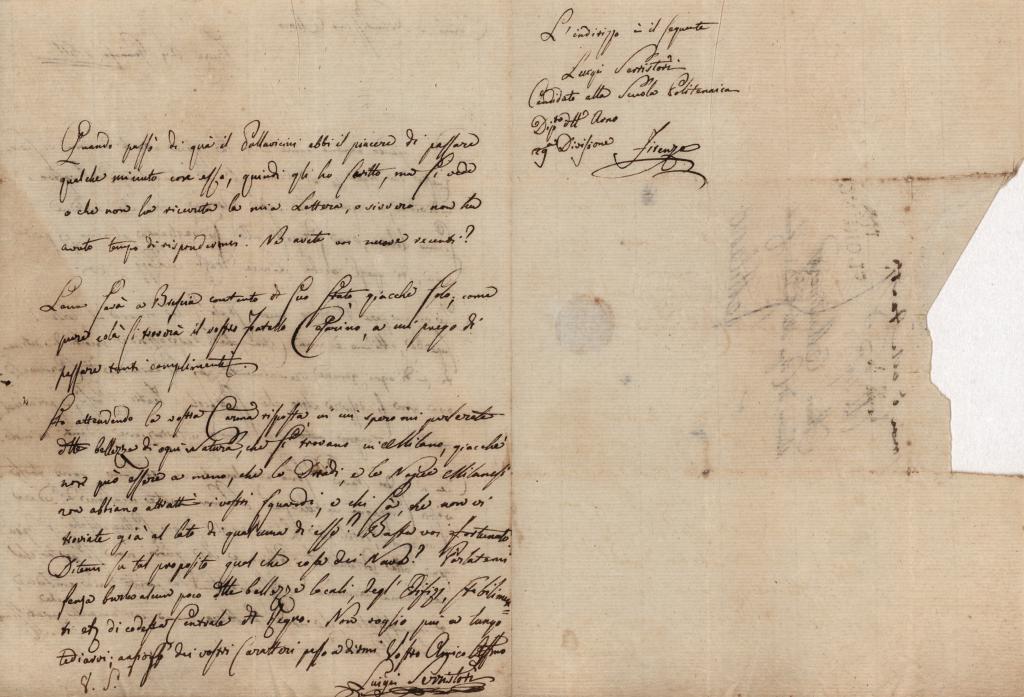 Quando passò di quà il Pallavicini ebbi il piacere di passare
qualche minuto con esso, quindi gli ho scritto, ma si vede
o che non ha ricevuta la mia Lettera, o sivvero non ha
avuto tempo di rispondermi. Ne avete voi nuove recenti?
Lana sarà a Brescia contento di suo stato, giacchè solo, come
pure colà si troverà il vostro Fratello, a cui prego di
passare tanti complimenti.
Sto attendendo la vostra Carma risposta, in cui spero mi parlerete
delle bellezze di ogni natura, che si trovano in Milano, giacchè
non può essere a meno, che le Driadi, e le Milanesi
non abbiano attratti i vostri sguardi, e chi sà, che non vi
troviate già al lato di qualcuna di esse? Basta voi fortunato
Ditemi su tal proposito qual che cosa dei
senza burle alcun poco delle bellezze locali, degl' Edifizj, Stabilimen=
ti &c di codesta Centrale del Regno. Non voglio più a lungo
tediarvi; dei vostri Caratteri passo a dirmi Vostro Amico Affmo
Luigi Serristori
L'indirizzo è il seguente
Luigi Serristori
Candidato alla Scuola Politecnica
Dipto dell' Arno
29a Divisione Firenze